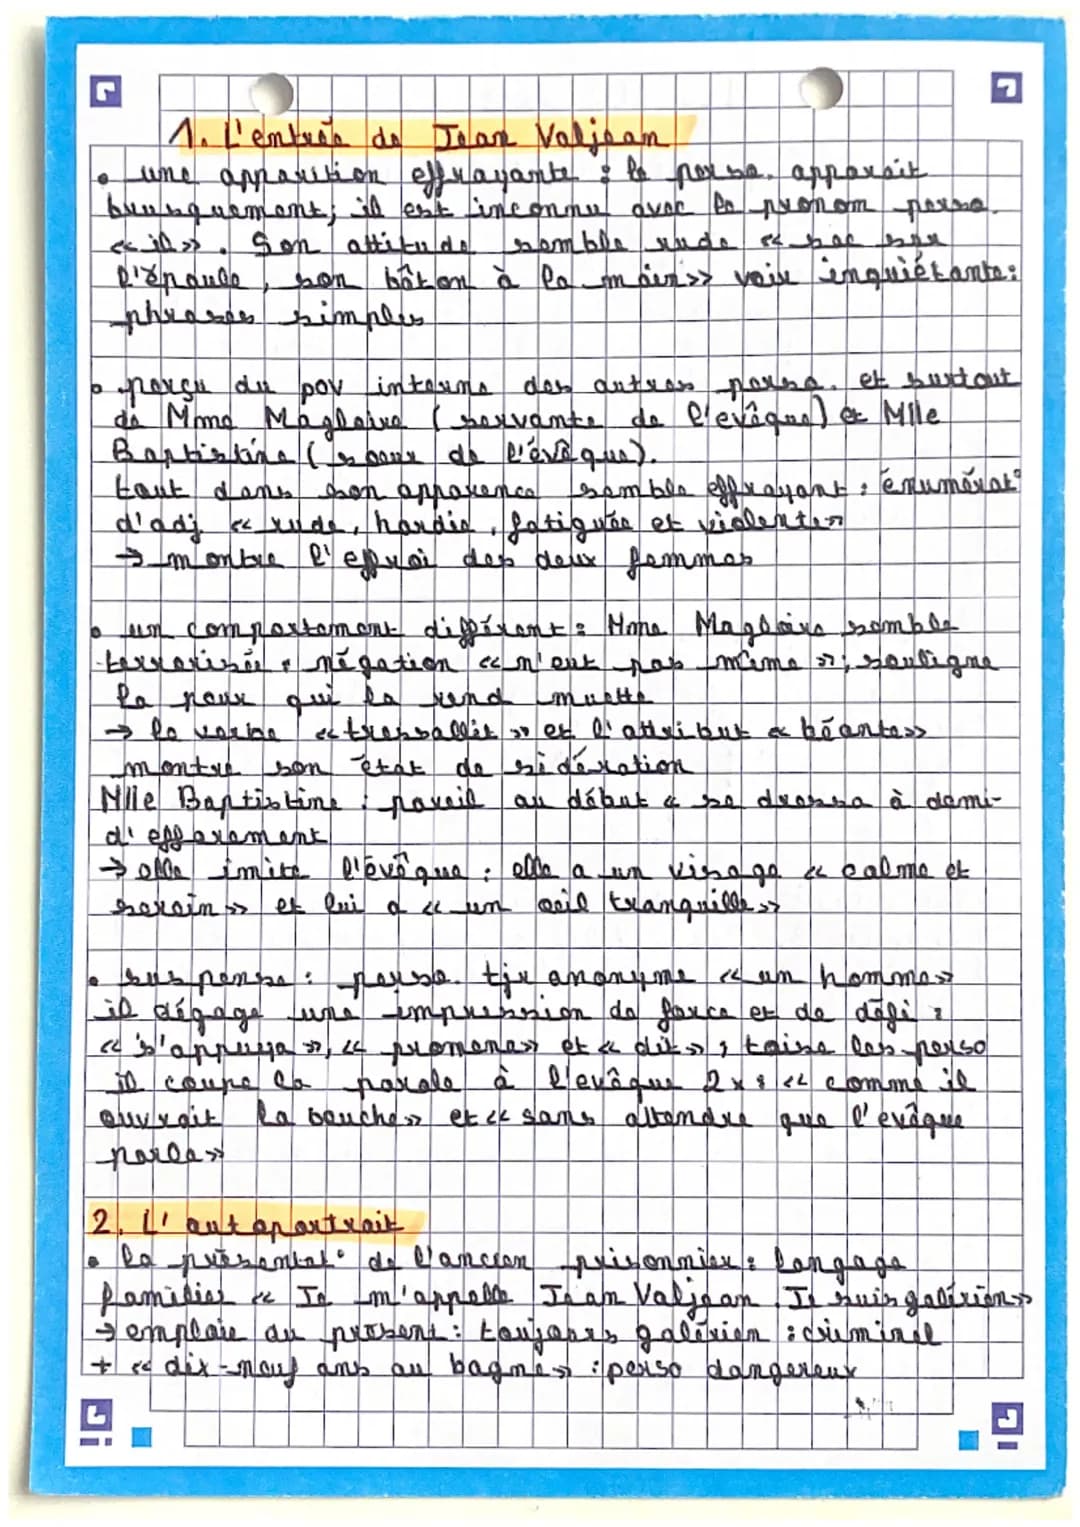 1. L'entrée de Jean Valjean
• une apparition effrayante : le perso. apparait
brusquement; il est inconnu avec le pronom perso.
« il ». Son attitude semble rude « sac sur
l'épaule, son bâton à la main » voix inquiétante :
phrases simples
• perçu du pov interne des autres perso. et surtout
de Mme Magloire (servante de l'evêque) et Mlle
Baptistine (soeur de l'évêque).
tout dans son apparence semble effrayant : énumérat°
d'adj « rude, hardie, fatiguée et violente »
→ montre l'effroi des deux femmes
• un comportement différent : Mme Magloire semble
terrorisée : négation « n'eut pas même » ; souligne
la peur qui la rend muette
→ le verbe « tressallit » et l'attribut « béante »
montre son état de sidération
Mlle Baptistine : pareil au début « se dressa à demi-
d'effarement
→ elle imite l'évêque : elle a un visage « calme et
serein » et lui a « un oeil tranquille »
• suspense : perso. tjr anonyme « un homme »
il dégage une impression de force et de défi :
« s'appuya », « promena » et « dit » ; toise les perso
il coupe la parole à l'evêque 2x : « comme il
ouvrait la bouche » et « sans attendre que l'evêque
parla »
2. L'autoportrait
• la présentat° de l'ancien prisonnier : langage
familier « Je m'appelle Jean Valjean. Je suis galérien »
→ emploie du présent : toujours galérien : criminel
+ « dix-neuf ans au bagne » : perso dangereux